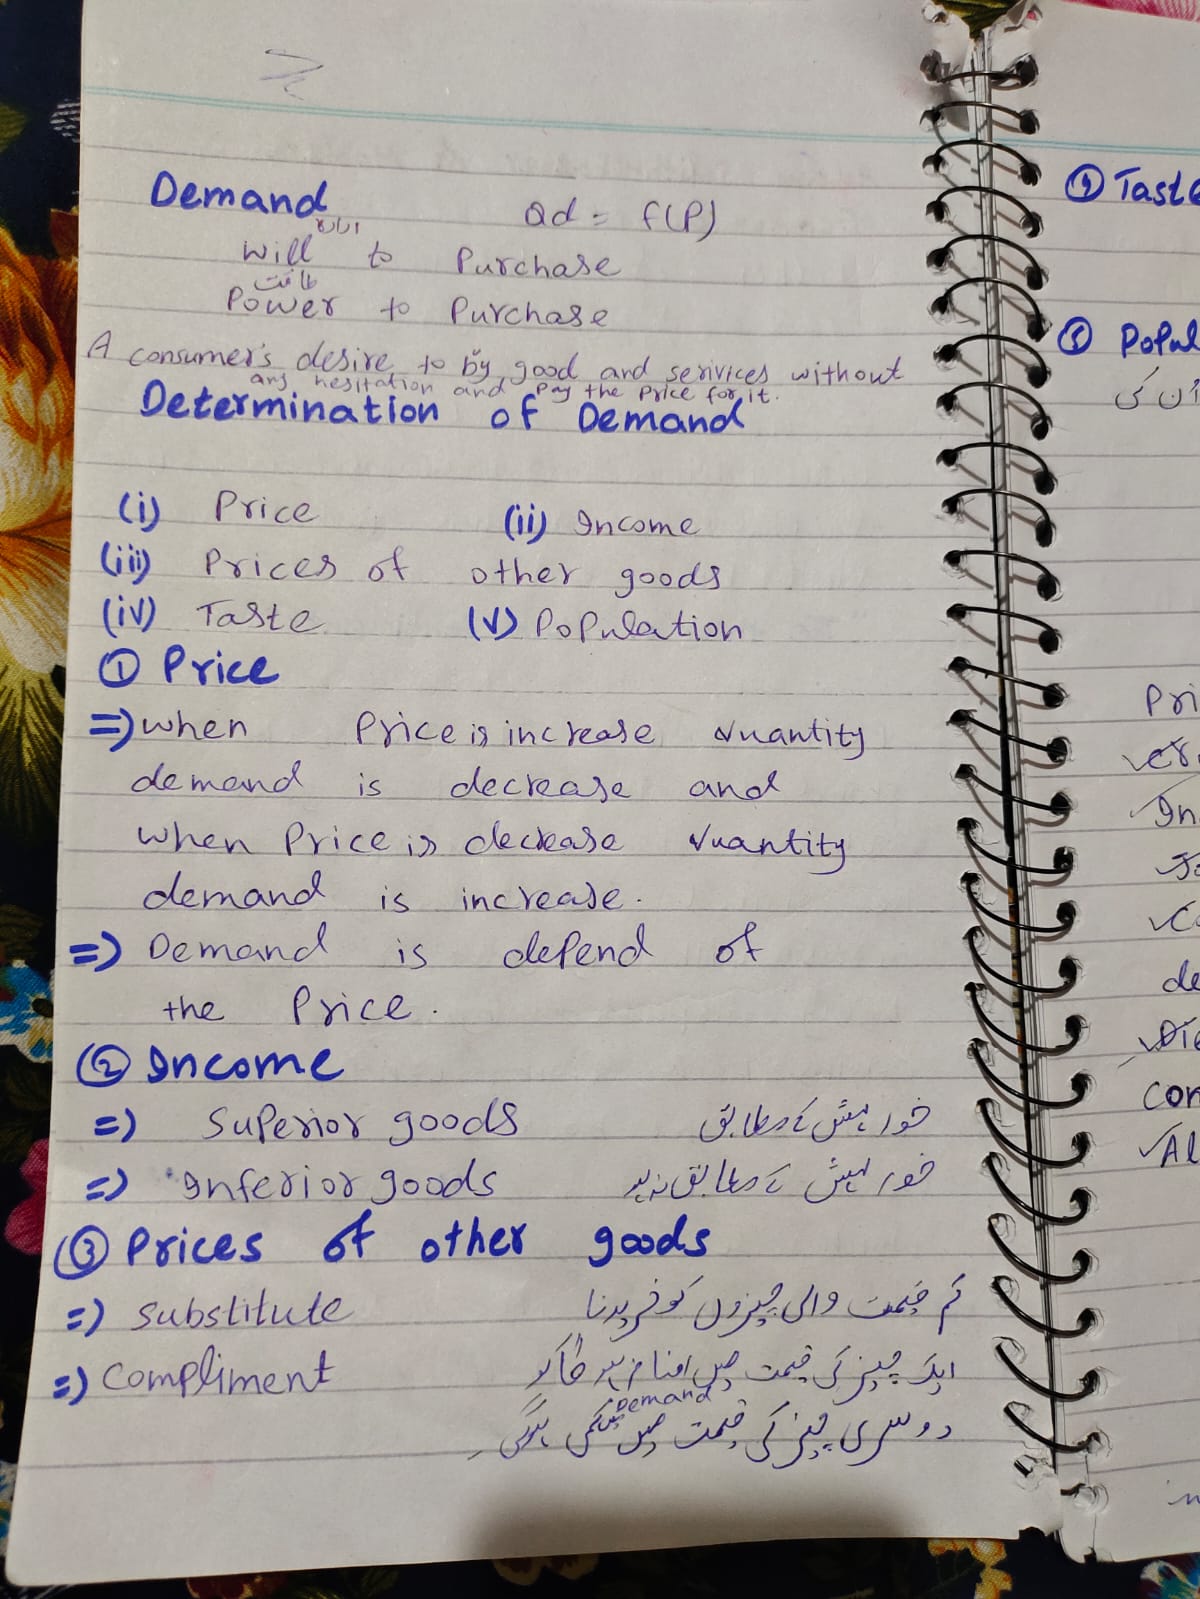 Demand
Qd = f(P)
ارادہ
will to Purchase
طاقت
Power to Purchase
A consumer's desire to by good and serivices without
any hesitation and pay the price for it.
Determination of Demand
(i) Price (ii) Income
(iii) Prices of other goods
(iv) Taste (v) Population
① Price
=> when Price is increase quantity
demand is decrease and
when Price is decrease quantity
demand is increase.
=> Demand is depend of
the Price.
② Income
=> Superior goods خواہش کے مطابق
=> Inferior goods خواہش کے مطابق نہ ہو
③ Prices of other goods
=> substitute کم قیمت والی چیزوں کو خریدنا
=> compliment ایک چیز کی قیمت میں اضافہ ہو گا تو
Demand
دوسری چیز کی قیمت میں کمی ہوگی
④ Taste
⑤ Popul
اُن کی
Pri
In
de
con
Al